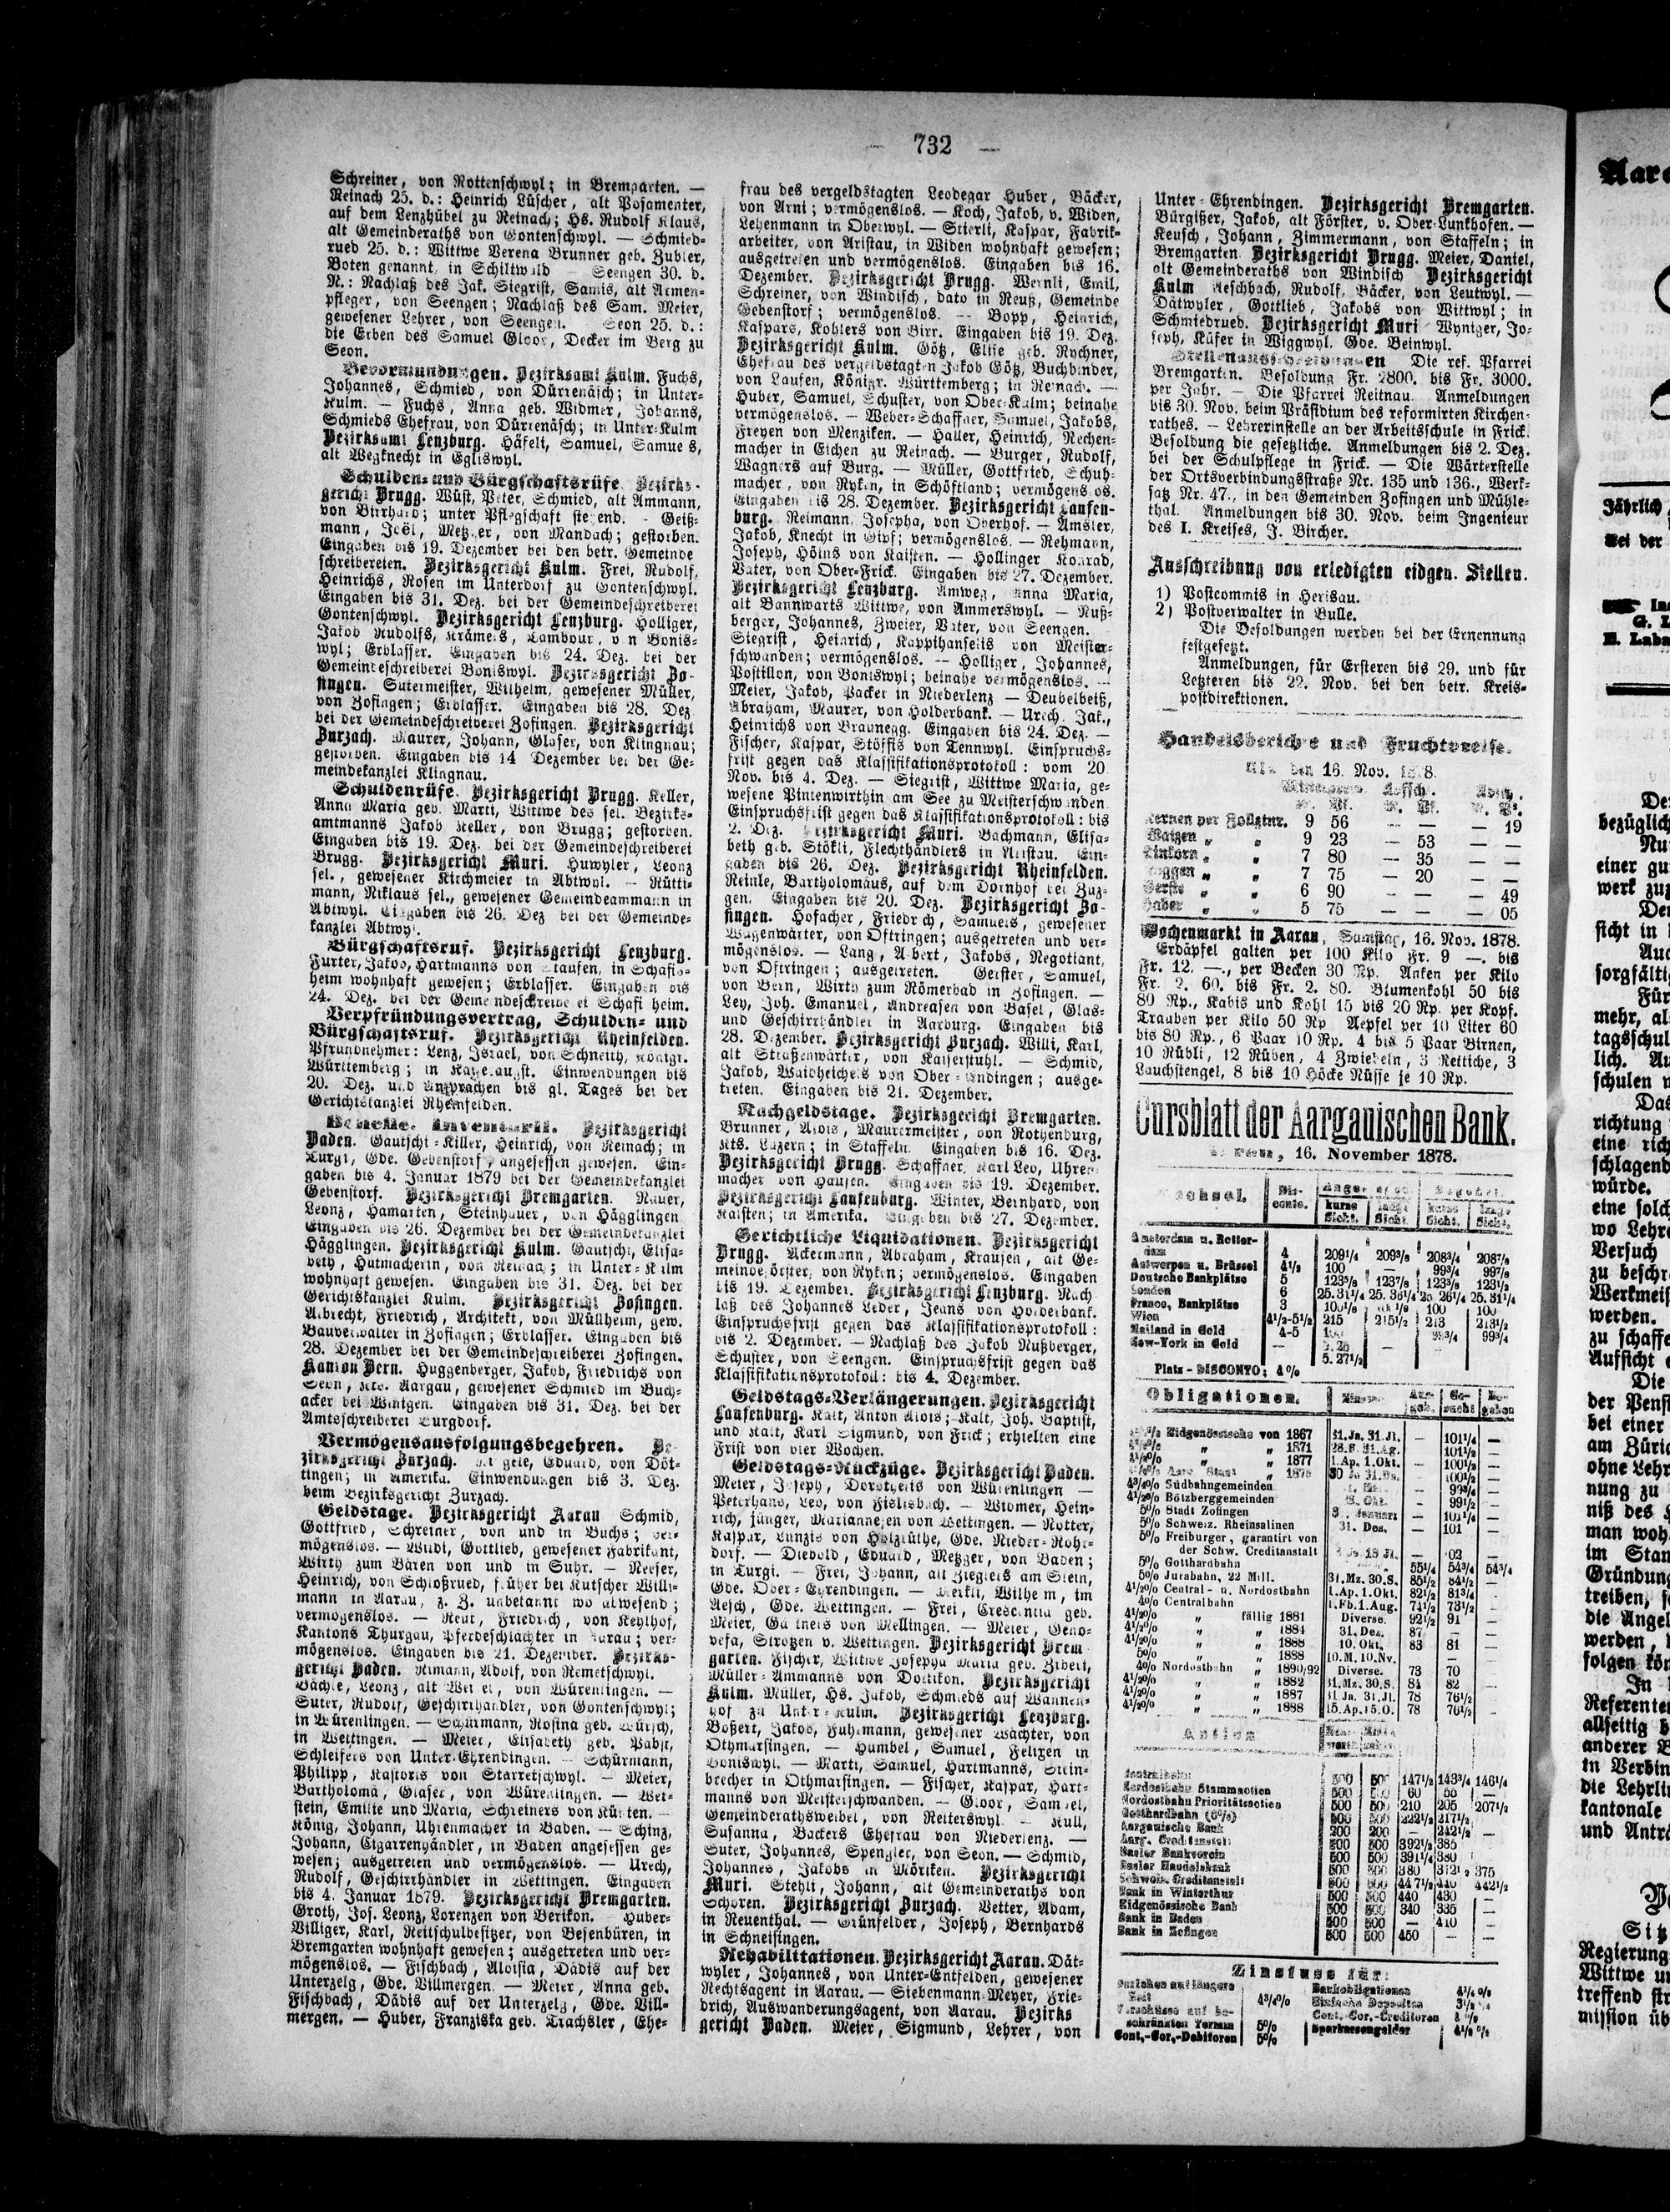 — 732 —
Schreiner, von Rottenschwyl; in Bremgarten. —
Reinach 25. d.: Heinrich Lüscher, alt Posamenter,
auf dem Lenzhübel zu Reinach; Hs. Rudolf Klaus,
alt Gemeinderaths von Gontenschwyl. — Schmied-
rued 25. d.: Wittwe Verena Brunner geb. Zubler,
Boten genannt, in Schiltwald — Seengen 30. d.
N.: Nachlaß des Jak. Siegrist, Samis, alt Armen-
pfleger, von Seengen; Nachlaß des Sam. Meier,
gewesener Lehrer, von Seengen. Seon 25. d.:
die Erben des Samuel Gloor, Decker im Berg zu
Seon.
Bevormundungen. Bezirksamt Kulm. Fuchs,
Johannes, Schmied, von Dürrenäsch; in Unter-
Kulm. — Fuchs, Anna geb. Widmer, Johanns,
Schmieds Ehefrau, von Dürrenäsch; in Unter-Kulm
Bezirksamt Lenzburg. Häfeli, Samuel, Samuels,
alt Wegknecht in Egliswyl.
Schulden- und Bürgschaftsrufe. Bezirks-
gericht Brugg. Wüst, Peter, Schmied, alt Ammann,
von Birrhard; unter Pflegschaft stehend. - Geiß-
mann, Joël, Metzger, von Mandach; gestorben.
Eingaben bis 19. Dezember bei den betr. Gemeinde
schreibereien. Bezirksgericht Kulm. Frei, Rudolf,
Heinrichs, Rosen im Unterdorf zu Gontenschwyl.
Eingaben bis 31. Dez. bei der Gemeindeschreiberei
Gontenschwyl. Bezirksgericht Lenzburg. Holliger,
Jakob Rudolfs, Krämers, Tambour, von Bonis-
wyl; Erblasser. Eingaben bis 24. Dez. bei der
Gemeindeschreiberei Boniswyl. Bezirksgericht Zo-
fingen. Sutermeister, Wilhelm, gewesener Müller,
von Zofingen; Erblasser. Eingaben bis 28. Dez
bei der Gemeindeschreiberei Zofingen. Bezirksgericht
Zurzach. Maurer, Johann, Glaser, von Klingnau;
gestorben. Eingaben bis 14 Dezember bei der Ge-
meindekanzlei Klingnau.
Schuldenrufe. Bezirksgericht Brugg. Keller,
Anna Maria geb. Märti, Wittwe des sel. Bezirks-
amtmanns Jakob Keller, von Brugg; gestorben.
Eingaben bis 19. Dez. bei der Gemeindeschreiberei
Brugg. Bezirksgericht Muri. Huwyler, Leonz
sel., gewesener Kirchmeier in Abtwyl. — Rütti-
mann, Niklaus sel., gewesener Gemeindeammann in
Abtwyl. Eingaben bis 26. Dez bei der Gemeinde-
kanzlei Abtwyl.
Bürgschaftsruf. Bezirksgericht Lenzburg.
Furter, Jakob, Hartmanns von Staufen, in Schafis-
heim wohnhaft gewesen; Erblasser. Eingaben bis
24. Dez. bei der Gemeindeschreiberei Schafisheim.
Verpfründungsvertrag, Schulden- und
Bürgschaftsruf. Bezirksgericht Rheinfelden.
Pfrundnehmer: Lenz, Israel, von Schneith, Königr.
Württemberg; in Kaiseraugst. Einwendungen bis
20. Dez. und Ansprachen bis gl. Tages bei der
Gerichtskanzlei Rheinfelden.
Benefic. Inventarii. Bezirksgericht
Baden. Gautschi-Killer, Heinrich, von Reinach; in
Turgi, Gde. Gebenstorf, angesessen gewesen. Ein-
gaben bis 4. Januar 1879 bei der Gemeindekanzlei
Gebenstorf. Bezirksgericht Bremgarten. Nauer,
Leonz, Hamarten, Steinhauer, von Hägglingen
Eingaben bis 26. Dezember bei der Gemeindekanzlei
Hägglingen. Bezirksgericht Kulm. Gautschi, Elisa-
beth, Hutmacherin, von Reinach; in Unter-Kulm
wohnhaft gewesen. Eingaben bis 31. Dez. bei der
Gerichtskanzlei Kulm. Bezirksgericht Zofingen.
Albrecht, Friedrich, Architekt, von Müllheim, gew.
Bauverwalter in Zofingen; Erblasser. Eingaben bis
28. Dezember bei der Gemeindeschreiberei Zofingen.
Kanton Bern. Huggenberger, Jakob, Friedrichs von
Seon, Kts. Aargau, gewesener Schmied im Buch-
acker bei Wintgen. Eingaben bis 31. Dez. bei der
Amtsschreiberei Burgdorf.
Vermögensausfolgungsbegehren. Be-
zirksgericht Zurzach. Eduard, von Döt-
tingen; in Amerika. Einwendungen bis 3. Dez.
beim Bezirksgericht Zurzach.
Geldstage. Bezirksgericht Aarau Schmid,
Gottfried, Schreiner, von und in Buchs; ver-
mögenslos. — Widi, Gottlieb, gewesener Fabrikant,
Wirth zum Bären von und in Suhr. — Neeser,
Heinrich, von Schloßrued, früher bei Kutscher Willi-
mann in Aarau, z. Z. unbekannt wo abwesend;
vermögenslos. — Reut, Friedrich, von Keßlhof,
Kantons Thurgau, Pferdeschlächter in Aarau; ver-
mögenslos. Eingaben bis 21. Dezember. Bezirks-
gericht Baden. Rimann, Adolf, von Remetschwyl.
Bächle, Leonz, alt Weibel, von Würenlingen. —
Suter, Rudolf, Geschirrhändler, von Gontenschwyl;
in Würenlingen. — Schürmann, Rosina geb. Würsch,
in Wettingen. — Meier, Elisabeth geb. Pabst,
Schleifers von Unter-Ehrendingen. — Schürmann,
Philipp, Kastoris von Starretschwyl. — Meier,
Bartholomä, Glaser, von Würenlingen. — Wet-
stein, Emilie und Maria, Schreiners von Künten. —
König, Johann, Uhrenmacher in Baden. — Schinz,
Johann, Cigarrenhändler, in Baden angesessen ge-
wesen; ausgetreten und vermögenslos. — Urech,
Rudolf, Geschirrhändler in Wettingen. Eingaben
bis 4. Januar 1879. Bezirksgericht Bremgarten.
Groth, Jos. Leonz, Lorenzen von Berikon. Huber-
Villiger, Karl, Reitschulbesitzer, von Besenbüren, in
Bremgarten wohnhaft gewesen; ausgetreten und ver-
mögenslos. — Fischbach, Aloisia, Dädis auf der
Unterzelg, Gde. Villmergen. — Meier, Anna geb.
Fischbach, Dädis auf der Unterzelg, Gde. Vill-
mergen. — Huber, Franziska geb. Trachsler, Ehe-
frau des vergeldstagten Leodegar Huber, Bäcker,
von Arni; vermögenslos. — Koch, Jakob, v. Widen,
Lehenmann in Oberwyl. — Stierli, Kaspar, Fabrik-
arbeiter, von Aristau, in Widen wohnhaft gewesen;
ausgetreten und vermögenslos. Eingaben bis 16.
Dezember. Bezirksgericht Brugg. Wernli, Emil,
Schreiner, von Windisch, dato in Reuß, Gemeinde
Gebenstorf; vermögenslos. — Bopp, Heinrich,
Kaspars, Kohlers von Birr. Eingaben bis 19. Dez.
Bezirksgericht Kulm. Götz, Elise geb. Rychner,
Ehefrau des vergeldstagten Jakob Götz, Buchbinder,
von Laufen, Königr. Württemberg; in Reinach. —
Huber, Samuel, Schuster, von Ober-Kulm; beinahe
vermögenslos. — Weber-Schaffner, Samuel, Jakobs,
Freyen von Menziken. — Haller, Heinrich, Rechen-
macher in Eichen zu Reinach. — Burger, Rudolf,
Wagners auf Burg. — Müller, Gottfried, Schuh-
macher, von Ryken, in Schöftland; vermögenslos.
Eingaben bis 28. Dezember. Bezirksgericht Laufen-
burg. Reimann, Josepha, von Oberhof. — Amsler,
Jakob, Knecht in Gipf; vermögenslos. — Rehmann,
Joseph, Höins von Kaisten. — Hollinger Konrad,
Vater, von Ober-Frick. Eingaben bis 27. Dezember.
Bezirksgericht Lenzburg. Amweg, Anna Maria,
alt Bannwarts Wittwe, von Ammerswyl. — Nuß-
berger, Johannes, Zweier, Vater, von Seengen.
Siegrist, Heinrich, Kappihanselis von Meister-
schwanden; vermögenslos. — Holliger, Johannes,
Postillon, von Boniswyl; beinahe vermögenslos. —
Meier, Jakob, Packer in Niederlenz — Deubelbeiß,
Abraham, Maurer, von Holderbank. — Urech, Jak.,
Heinrichs von Braunegg. Eingaben bis 24. Dez. —
Fischer, Kaspar, Stöffis von Tennwyl. Einspruchs-
frist gegen das Klassifikationsprotokoll: vom 20.
Nov. bis 4. Dez. — Siegrist, Wittwe Maria, ge-
wesene Pintenwirthin am See zu Meisterschwanden.
Einspruchsfrist gegen das Klassifikationsprotokoll: bis
2. Dez. Bezirksgericht Muri. Bachmann, Elisa-
beth geb. Stökli, Flechthändlers in Aristau. Ein-
gaben bis 26. Dez. Bezirksgericht Rheinfelden.
Reinle, Bartholomäus, auf dem Dornhof bei Zuz-
gen. Eingaben bis 20. Dez. Bezirksgericht Zo-
fingen. Hofacher, Friedrich, Samuels, gewesener
Wagenwärter, von Oftringen; ausgetreten und ver-
mögenslos. — Lang, Albert, Jakobs, Negotiant,
von Oftringen; ausgetreten. Geister, Samuel,
von Bern, Wirth zum Römerbad in Zofingen. —
Ley, Joh. Emanuel, Andreasen von Basel, Glas-
und Geschirrhändler in Aarburg. Eingaben bis
28. Dezember. Bezirksgericht Zurzach. Willi, Karl,
alt Straßenwärter, von Kaiserstuhl. — Schmid,
Jakob, Waidheichels von Ober-Endingen; ausge-
treten. Eingaben bis 21. Dezember.
Nachgeldstage. Bezirksgericht Bremgarten.
Brunner, Alois, Maurermeister, von Rothenburg,
Kts. Luzern; in Staffeln. Eingaben bis 16. Dez.
Bezirksgericht Brugg. Schaffner, Karl Leo, Uhren-
macher von Hausen. Eingaben bis 19. Dezember.
Bezirksgericht Laufenburg. Winter, Bernhard, von
Kaisten; in Amerika. Eingaben bis 27. Dezember.
Gerichtliche Liquidationen. Bezirksgericht
Brugg. Ackermann, Abraham, Krausen, alt Ge-
meindeförster, von Ryken; vermögenslos. Eingaben
bis 19. Dezember. Bezirksgericht Lenzburg. Nach
laß des Johannes Leder, Jeans von Holderbank.
Einspruchsfrist gegen das Klassifikationsprotokoll:
bis 2. Dezember. — Nachlaß des Jakob Nußberger,
Schuster, von Seengen. Einspruchsfrist gegen das
Klassifikationsprotokoll: bis 4. Dezember.
Geldstags-Verlängerungen. Bezirksgericht
Laufenburg. Kalt, Anton Alois; Kalt, Joh. Baptist,
und Kalt, Karl Sigmund, von Frick; erhielten eine
Frist von vier Wochen.
Geldstags-Rückzüge. Bezirksgericht Baden.
Meier, Joseph, Dorothelis von Würenlingen —
Peterhans, Leo, von Fislisbach. — Widmer, Hein-
rich, jünger, Mariannezen von Wettingen. — Notter,
Kaspar, Lunzis von Holzrüthe, Gde. Nieder-Rohr-
dorf. — Diebold, Eduard, Metzger, von Baden;
in Turgi. — Frei, Johann, alt Zieglers am Stein,
Gde. Ober-Ehrendingen. — Merkli, Wilhelm, im
Aesch, Gde. Wettingen. — Frei, Crescentia geb.
Meier, Gärtners von Mellingen. — Meier, Geno-
vefa, Stroßen v. Wettingen. Bezirksgericht Brem
garten. Fischer, Wittwe Josepha Maria geb. Zibert,
Müller-Ammanns von Dottikon. Bezirksgericht
Kulm. Müller, Hs. Jakob, Schmieds auf Wannen-
hof zu Unter-Kulm. Bezirksgericht Lenzburg.
Boßert, Jakob, Fuhrmann, gewesener Wächter, von
Othmarsingen. — Humbel, Samuel, Felixen in
Boniswyl. — Marti, Samuel, Hartmanns, Stein-
brecher in Othmarsingen. — Fischer, Kaspar, Hart-
manns von Meisterschwanden. — Gloor, Samuel,
Gemeinderathsweibel, von Retterswyl — Kull,
Susanna, Bäckers Ehefrau von Niederlenz. —
Suter, Johannes, Spengler, von Seon. — Schmid,
Johannes, Jakobs in Möriken. Bezirksgericht
Muri. Stehli, Johann, alt Gemeinderaths von
Schoren. Bezirksgericht Zurzach. Vetter, Adam,
in Reuenthal. — Grünfelder, Joseph, Bernhards
in Schneisingen.
Rehabilitationen. Bezirksgericht Aarau. Dät-
wyler, Johannes, von Unter-Entfelden, gewesener
Rechtsagent in Aarau. — Siebenmann-Meyer, Frie-
drich, Auswanderungsagent, von Aarau. Bezirks
gericht Baden. Meier, Sigmund, Lehrer, von
Unter-Ehrendingen. Bezirksgericht Bremgarten.
Bürgißer, Jakob, alt Förster, v. Ober-Lunkhofen. —
Keusch, Johann, Zimmermann, von Staffeln; in
Bremgarten. Bezirksgericht Brugg. Meier, Daniel,
alt Gemeinderaths von Windisch Bezirksgericht
Kulm Aeschbach, Rudolf, Bäcker, von Leutwyl. —
Dätwyler, Gottlieb, Jakobs von Wittwyl; in
Schmiedrued. Bezirksgericht Muri Wyniger, Jo-
seph, Käser in Wiggwyl, Gde. Beinwyl.
Stellenausschreibungen Die ref. Pfarrei
Bremgarten. Besoldung Fr. 2800. bis Fr. 3000.
per Jahr. — Die Pfarrei Reitnau. Anmeldungen
bis 30. Nov. beim Präsidium des reformirten Kirchen-
rathes. — Lehrerinstelle an der Arbeitsschule in Frick.
Besoldung die gesetzliche. Anmeldungen bis 2. Dez.
bei der Schulpflege in Frick. — Die Wärterstelle
der Ortsverbindungsstraße Nr. 135 und 136., Werk-
satz Nr. 47., in den Gemeinden Zofingen und Mühle-
thal. Anmeldungen bis 30. Nov. beim Ingenieur
des I. Kreises, J. Bircher.
Ausschreibung von erledigten eidgen. Stellen.
1) Postcommis in Herisau.
2) Postverwalter in Bulle.
Die Besoldungen werden bei der Ernennung
festgesetzt.
Anmeldungen, für Ersteren bis 29. und für
Letzteren bis 22. Nov. bei den betr. Kreis-
postdirektionen.
Handelsberichte und Fruchtpreise.
Ulm den 16. Nov. 1878.
Mittelpreis. Aufschl. Abschl.
Kernen per Zollztnr. 9 56 — — — 19
Waizen „ „ 9 23 — 53 — —
Einkorn „ „ 7 80 — 35 — —
Roggen „ „ 7 75 — 20 — —
Gerste „ „ 6 90 — — — 49
Haber „ „ 5 75 — — — 05
Wochenmarkt in Aarau, Samstag, 16. Nov. 1878.
Erdäpfel galten per 100 Kilo Fr. 9 —. bis
Fr. 12. —., per Becken 30 Rp. Anken per Kilo
Fr. 2. 60. bis Fr. 2. 80. Blumenkohl 50 bis
80 Rp., Kabis und Kohl 15 bis 20 Rp. per Kopf.
Trauben per Kilo 50 Rp Aepfel per 10 Liter 60
bis 80 Rp., 6 Paar 10 Rp. 4 bis 5 Paar Birnen,
10 Rübli, 12 Rüben, 4 Zwiebeln, 3 Rettiche, 3
Lauchstengel, 8 bis 10 Höcke Nüsse je 10 Rp.
Cursblatt der Aargauischen Bank.
Aarau, 16. November 1878.
Wechsel. Dis-conto. kurze Sicht. lange Sicht. kurze Sicht. lange Sicht.
Amsterdam u. Rotter-
dam 4 209 1/4 209 3/8 208 3/4 208 7/8
Antwerpen u. Brüssel 4 1/2 100 — 99 3/4 99 7/8
Deutsche Bankplätze 5 123 5/8 123 7/8 123 3/8 123 1/2
London 6 25.31 1/4 25.36 1/4 25.26 1/4 25.31 1/4
Franco, Bankplätze 3 100 1/8 100 1/8 100 100
Wien 4 1/2-5 1/2 215 215 1/2 213 213 1/2
Mailand in Gold 4-5 100 99 3/4 99 3/4
New-York in Gold — 5.25 —
5.27 1/2
Platz-DISCONTO: 4%
Obligationen. Zinse. Aus-geb. Ge-sucht Be-geben
Eidgenössische von 1867 31. Ja. 31. Jl. — 101 1/4 —
„ „ 1871 28. F. 31. Ag. 101 1/2 —
4 1/2% „ „ 1877 1. Ap. 1. Okt. — 100 1/2 —
Aarg. Staat „ 1875 30 Ju 31. De. 100 1/2 —
4 3/4% Südbahngemeinden — 99 3/4 —
4 1/2% Bötzberggemeinden — 99 1/2 —
5% Stadt Zofingen — 101 1/4 —
5% Schweiz. Rheinsalinen 31. Dez. — 101 —
5% Freiburger, garantirt von
der Schw. Creditanstalt — 102 —
5% Gotthardbahn 55 1/4 54 3/4 54 3/4
5% Jurabahn, 22 Mill. 31. Mz. 30. S. 85 1/2 84 1/2 —
4 1/2% Central- u. Nordostbahn 1. Ap. 1. Okt. 82 1/2 81 3/4 —
4% Centralbahn 1. Fb. 1. Aug. 74 1/2 73 1/2 —
4 1/2% „ fällig 1881 Diverse. 92 1/2 91 —
4 1/2% „ „ 1884 31. Dez. 87 — —
4 1/2% „ „ 1888 10. Okt. 83 81 —
5% „ „ 1888 10. M. 10. Nv. —
4% Nordostbahn „ 1890/92 Diverse. 73 70
4 1/2% „ „ 1882 31. Mz. 30. S. 84 82 —
4 1/2% „ „ 1887 31. Ja. 31. Jl. 78 76 1/2
4 1/2% „ „ 1888 15. Ap. 15. O. 78 76 1/2 —
Actien
Centralbahn 500 500 147 1/2 143 3/4 146 1/4
Nordostbahn Stammactien 500 500 60 55 —
Nordostbahn Prioritätsactien 500 500 210 205 207 1/2
Gotthardbahn (60%) 500 500 222 1/2 217 1/2
Aargauische Bank 200 200 — 242 1/2 —
Aarg. Creditanstalt 500 500 392 1/2 385
Basler Bankverein 500 500 391 1/4 380
Basler Handelsbank 500 500 380 372 1/2 375
Schweiz. Creditanstalt 500 500 447 1/2 440 442 1/2
Bank in Winterthur 500 500 440 430 —
Eidgenössische Bank 500 500 340 335 —
Bank in Baden 500 500 — 410 —
Bank in Zofingen 500 500 450 — —
Zinsfuss für:
Darlehen auf längere
Zeit 4 3/4%
Vorschüsse auf be-
schränkten Termin 5%
Cont.-Cor.-Debitoren 5%
Bankobligationen 4 1/2 %
Einfache Depositen 3 1/2 %
Cont.-Cor.-Creditoren
Sparkassengelder 4 1/2 %
Jährlich
Bei der
G. L
H. Laba
bezüglich
einer gu
werk zuz
sicht in
sorgfälti
Für
mehr, al
tagsschul
lich. Au
schulen
richtung
eine rich
schlagend
würde.
eine solch
wo Lehre
Versuch
zu beschr
Werkmeis
werden.
zu schaffe
Aufsicht
Die
der Pens
bei einer
am Züri
ohne Lehr
nung zu
niß des
man woh
im Stan
Gründun
treiben, s
die Angel
werden,
folgen kön
In
Referenten
allseitig
anderer B
in Verbin
die Lehrli
kantonale
und Anträ
Sitz
Regierung
Wittwe u
treffend
mission üb